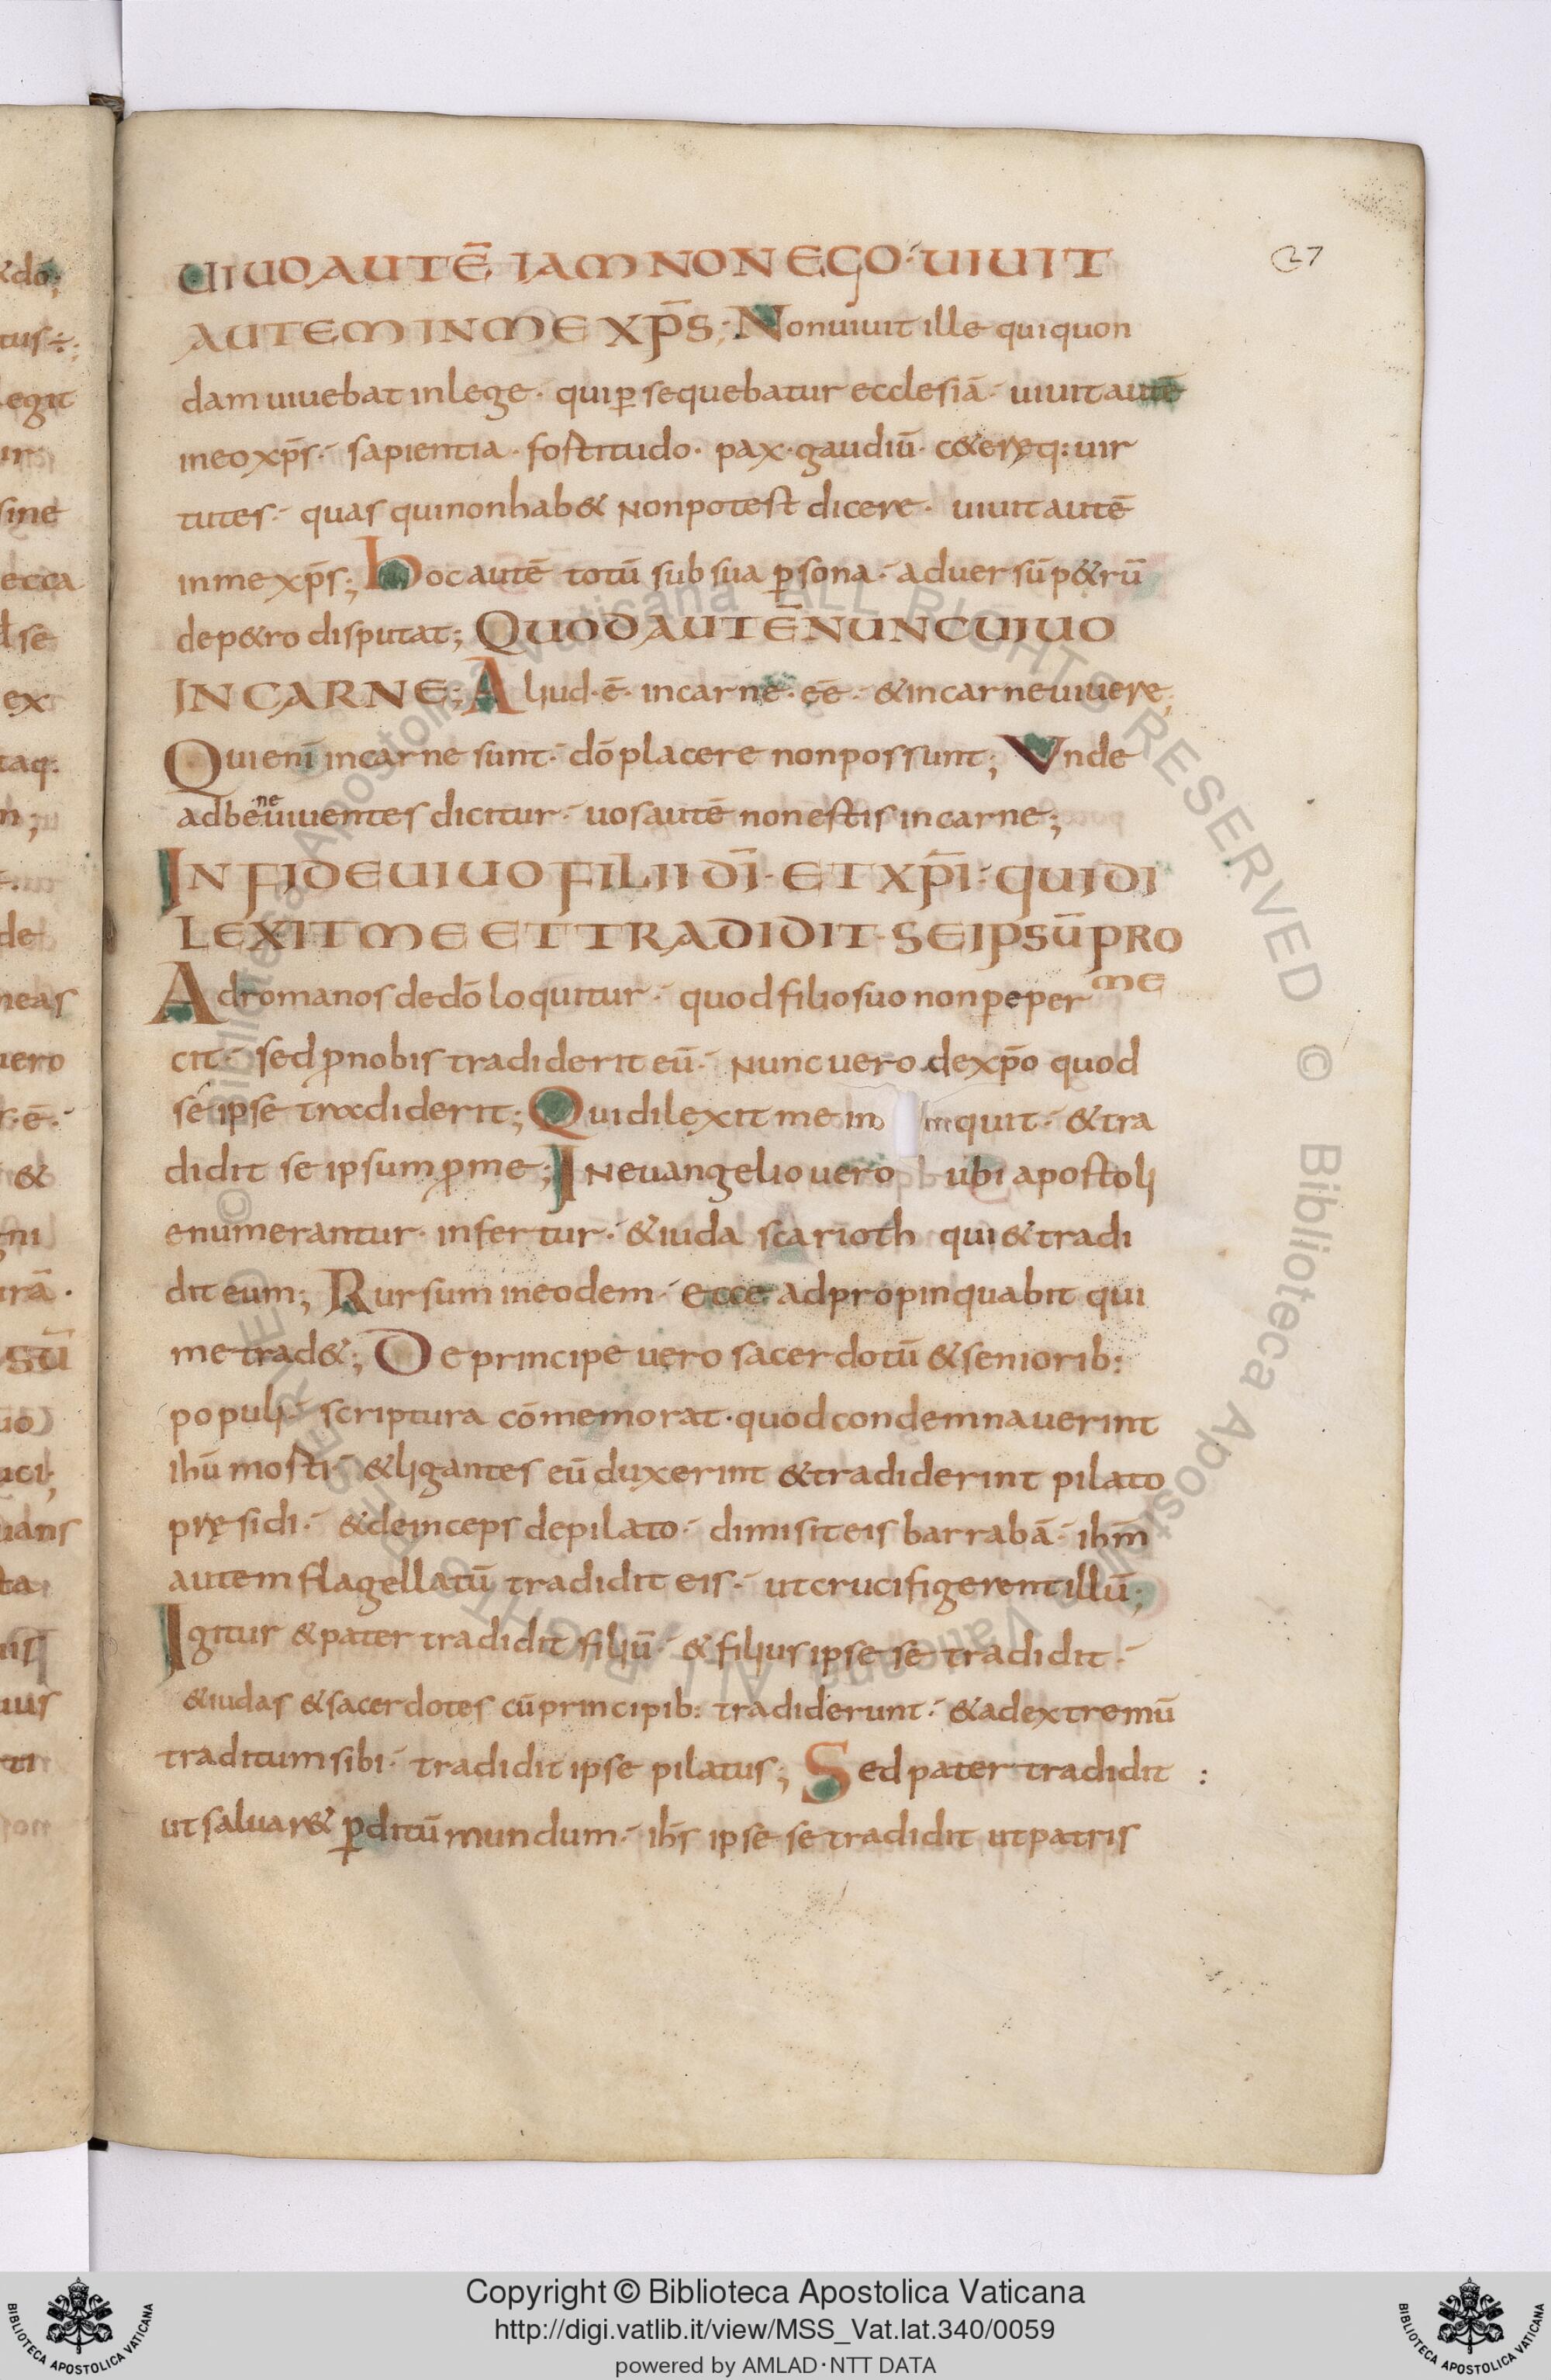 UIUO AUTĒ IAM NON EGO· UIUIT
AUTEM IN ME XP̄S; Non uiuit ille qui quon
dam uiuebat in lege· qui ꝑsequebatur ecclesiā· uiuit autē
in eo xp̄s· sapientia· fortitudo· pax· gaudiū· c&eręq: uir
tutes· quas qui non hab& non potest dicere· uiuit autē
in me xp̄s; hoc autē totū sub sua ꝑsona· aduersū p&rū
de p&ro disputat; QUOD AUTĒ NUNC UIUO
IN CARNE; Aliud·ē· in carne·eē· & in carne uiuere;
Qui enī in carne sunt· dō placere non possunt; Vnde
ad bene uiuentes dicitur· uos autē non estis in carne;
IN FIDE UIUO FILII DĪ· ET XP̄I· QUI DI
LEXIT ME ET TRADIDIT· SEIPSŪ PRO
ME
Ad romanos de dō loquitur· quod filio suo non peper
cit· sed ꝓ nobis tradiderit eū· Nunc uero de xp̄o quod
se ipse tradiderit; Qui dilexit me in inquit· & tra
didit se ipsum ꝓ me; IN euangelio uero ubi apostoli
enumerantur· infertur· & iuda scarioth qui & tradi
dit eum; Rursum in eodem· ecce adpropinquabit qui
me trad&; De principe uero sacerdotū & seniorib:
populi· scriptura cōmemorat· quod condemnauerint
ihū morti· & ligantes eū duxerint & tradiderint pilato
pręsidi· & deinceps de pilato· dimisit eis barrabā· ihm̄
autem flagellatū tradidit eis· ut crucifigerent illū;
Igitur & pater tradidit filiū· & filius ipse se tradidit·
& iudas & sacerdotes cū principib: tradiderunt· & ad extremū
traditum sibi· tradidit ipse pilatus; Sed pater tradidit :
ut saluar& ꝑditū mundum· ih̄s ipse se tradidit ut patris
27
Copyright © Biblioteca Apostolica Vaticana
http://digi.vatlib.it/view/MSS_Vat.lat.340/0059
powered by AMLAD·NTT DATA
BIBLIOTECA APOSTOLICA VATICANA
BIBLIOTECA APOSTOLICA VATICANA